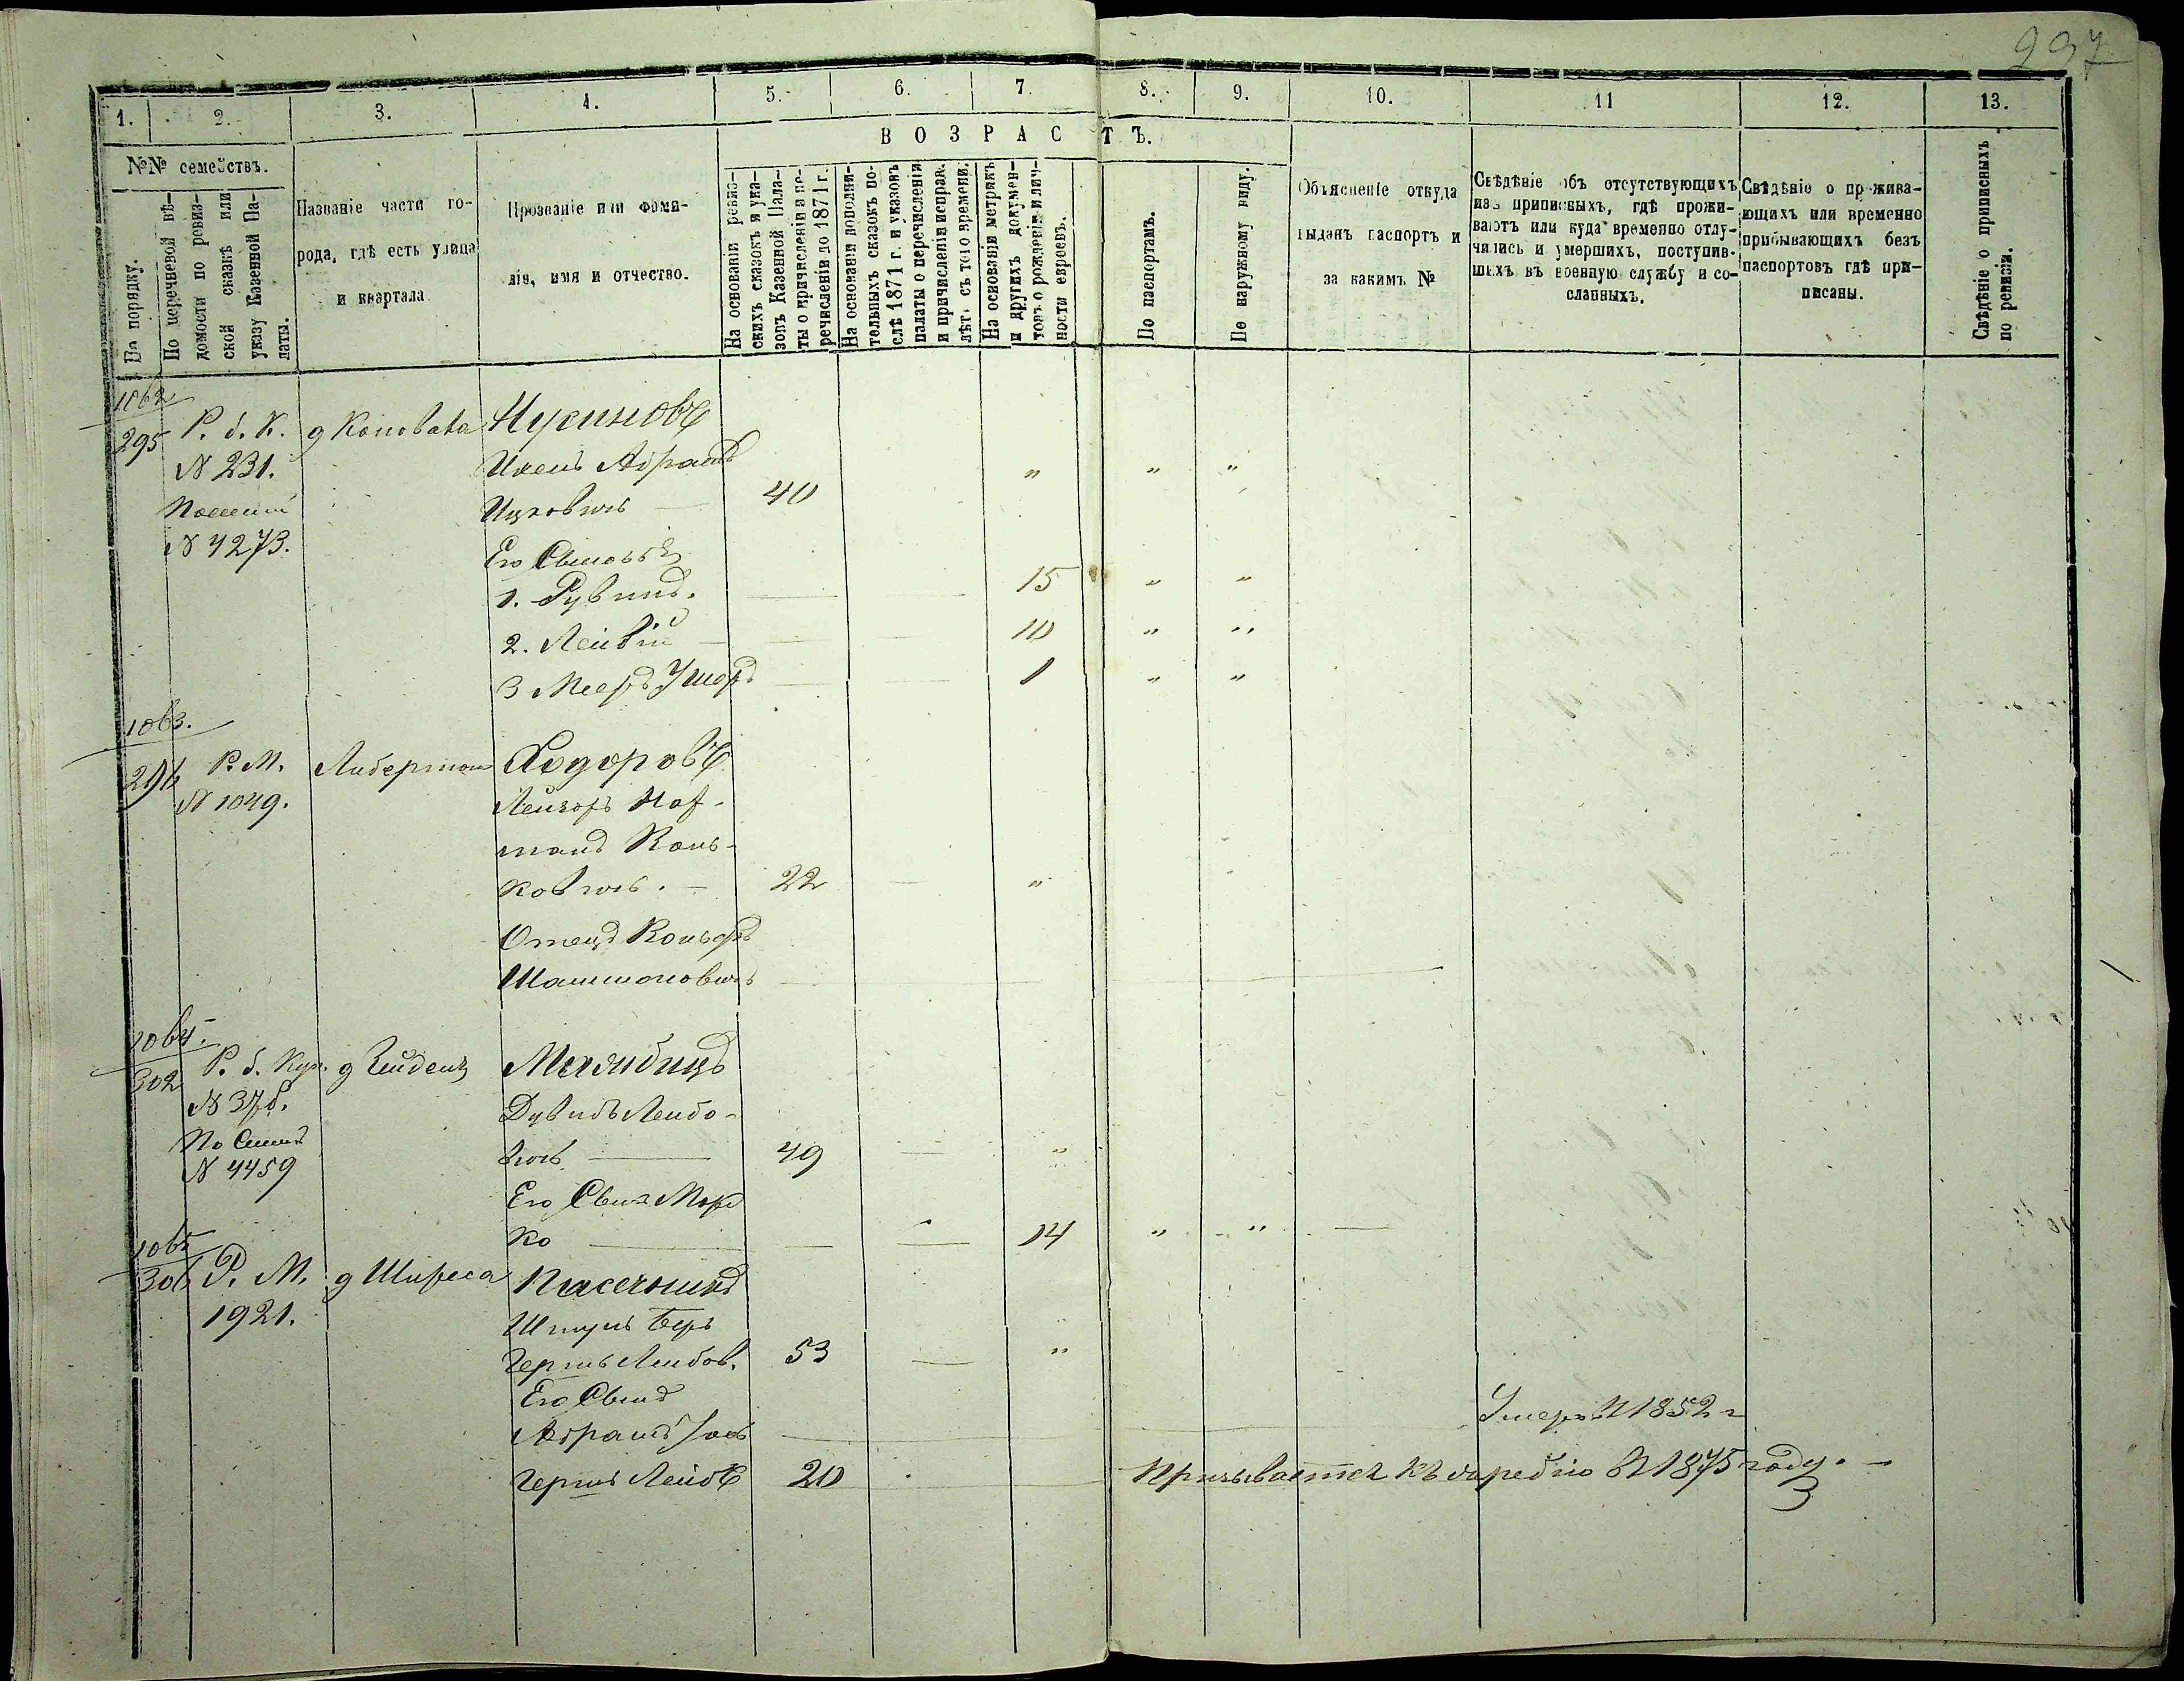 297
1. 2. 3. 4. 5. 6. 7. 8. 9. 10. 11 12. 13.
ВОЗРАСТЪ.
№№ семействъ.
По порядку.
По перечневой вѣ-
домости по ревиз-
ской сказкѣ или
указу Казенной Па-
латы.
Названіе части го-
рода, гдѣ есть улица
и квартала
Прозваніе или фами-
лія, имя и отчество.
На основаніи ревиз-
скихъ сказокъ и ука-
зовъ Казенной Пала-
ты о причисленіи и пе-
речисленіи до 1871 г.
На основаніи дополни-
тельныхъ сказокъ по-
слѣ 1871 г. и указовъ
палаты о перечисленіи
и причисленіи исправ.
лѣт. съ того времени.
На основаніи метрикъ
и другихъ докумен-
товъ о рожденіи и лич-
ности евреевъ.
По паспортамъ.
По наружному виду.
Объясненіе откуда
выданъ паспортъ и
за какимъ №
Свѣдѣніе объ отсутствующихъ
изъ приписныхъ, гдѣ прожи-
ваютъ или куда временно отлу-
чились и умершихъ, поступив-
шихъ въ военную службу и со-
сланныхъ.
Свѣдѣніе о прожива-
ющихъ или временно
прибывающихъ безъ
паспортовъ гдѣ при-
писаны.
Свѣдѣніе о приписныхъ
по ревизіи.
1062
295 Р. б. К. д Коновала Нусиновъ
N 231. Абрамъ " " "
Ицковичъ 40
N 4273.
Его Сыновья
1. Рувинъ. 15 " "
2. Лейвій 10 " "
3 Мееръ Ушеръ 1 " "
1063.
296 Р. М. Либерман Ходоровъ
N 1049. Лейзоръ Наф-
танъКонь-
ковичъ. 22 "
Отецъ
Шаммоновичъ
1064.
302 Р. б. Куп.
N 37б. Дувидъ Лейбо-
вичъ 49 "
N 4459
Его Сынъ Морд
ко 14 " "
1065
306 Р. М. д Шифеса Пасечникъ
1921. Шмуль Беръ
Гершъ Лейбов. 53 "
Его Сынъ
Абрамъ Умеръ въ 1852 г
Гершъ Лейбъ 20 Призывается къ жребію въ 1875 году.